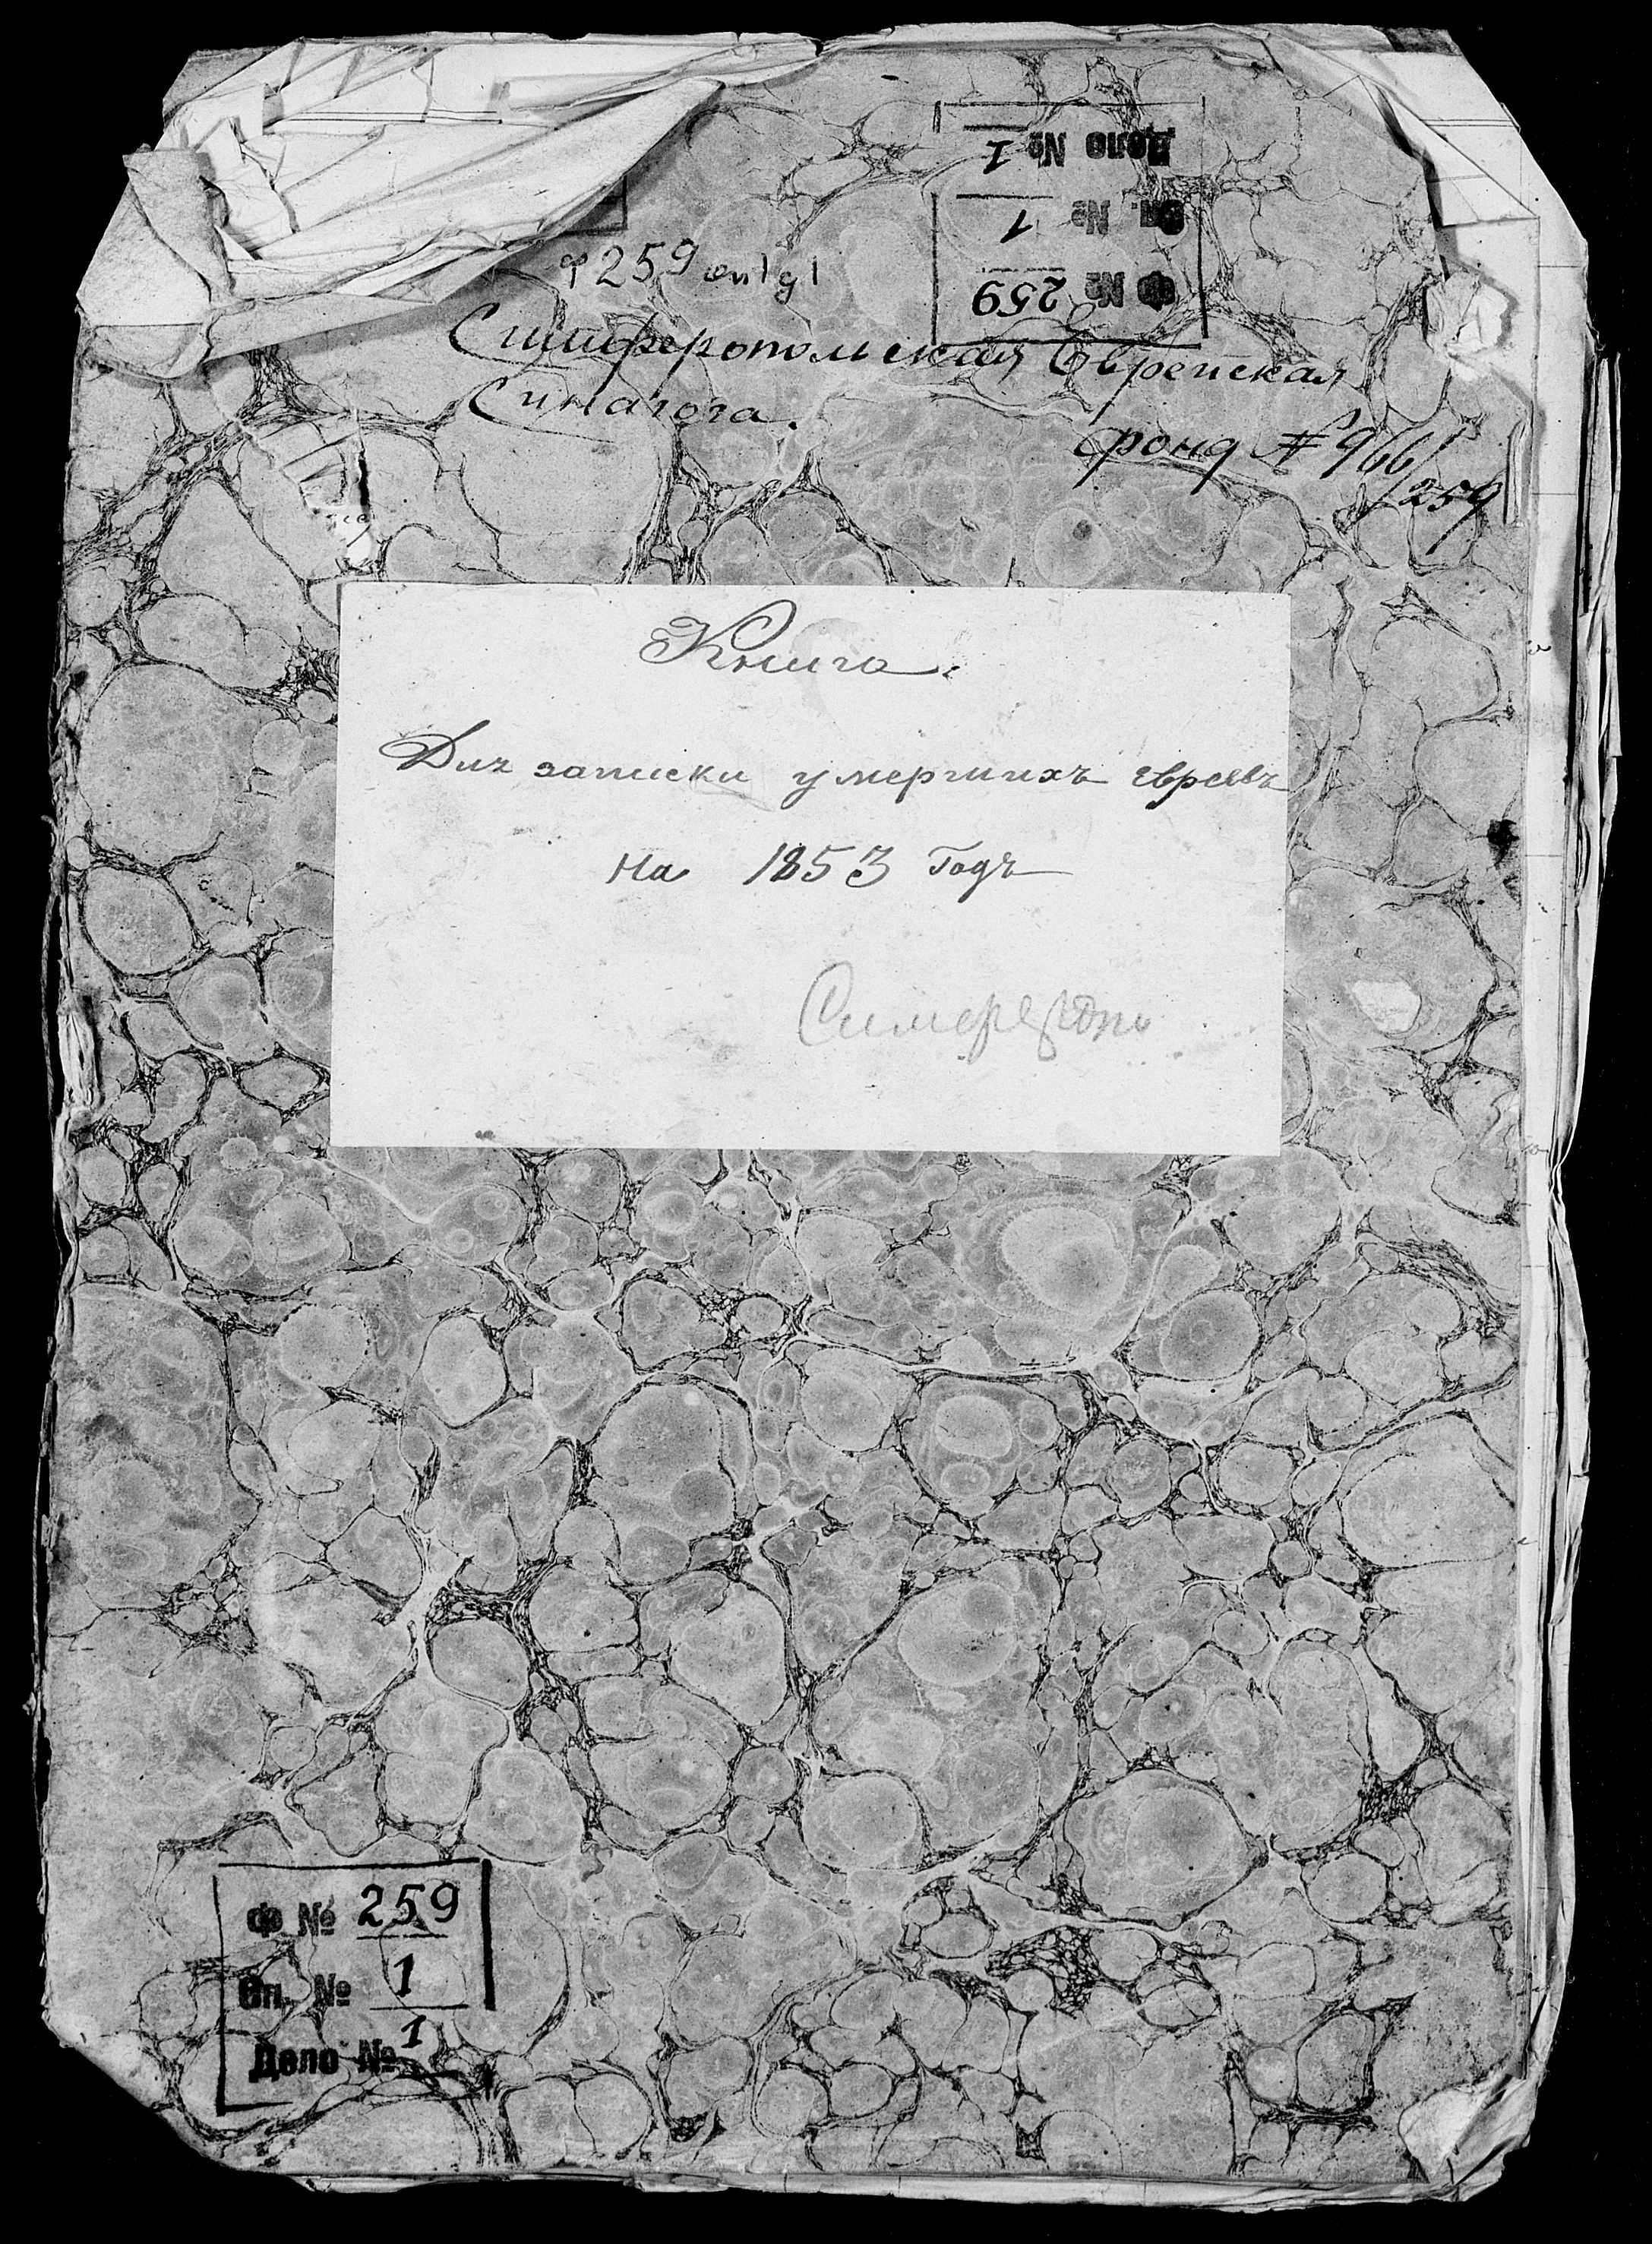 Дело № 1
Оп. № 1
Ф № 259
ф 259 оп 1 д 1
Симферопольская Еврейская
Синагога.
фонд № 966/
259
Книга.
Для записки умершихъ евреевъ
на 1853 Годъ
Симферополь
Ф № 259
Оп. № 1
Дело № 1